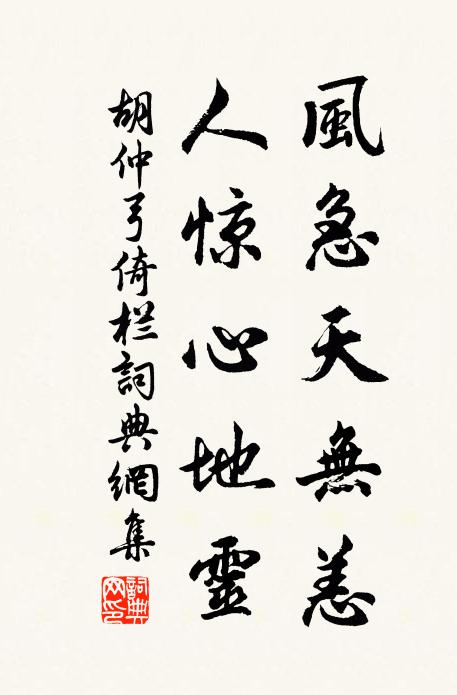 風急天無恙
人惊心地靈
胡仲弓倚栏詞典網集
詞典网印